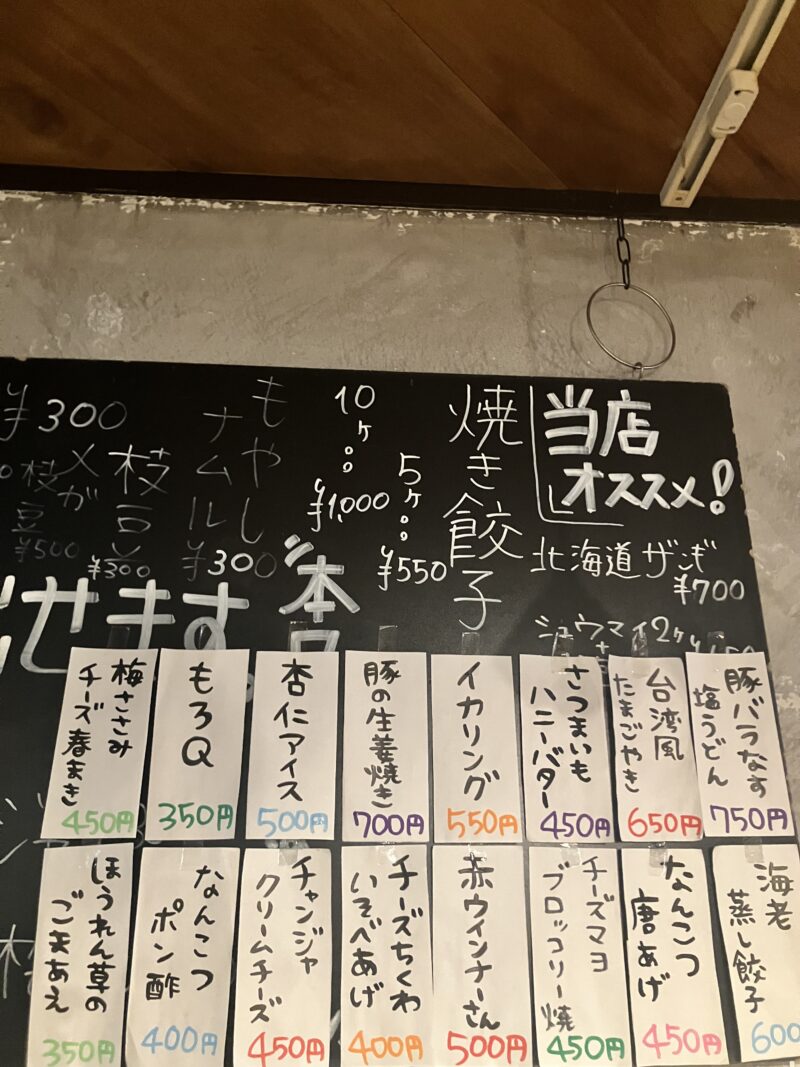 当店
オススメ!
北海道ザンギ
¥700
シュウマイ2ケ
焼き餃子
5ケ。。
¥550
10ケ。。
¥1,000
もやし
ナムル
¥300
枝豆
¥300
メガ
枝豆
¥500
¥300
せます。
豚バラなす
塩うどん
750円
台湾風
たまごやき
650円
さつまいも
ハニーバター
450円
イカリング
550円
豚の生姜焼き
700円
杏仁アイス
500円
もろQ
350円
梅ささみ
チーズ春まき
450円
海老
蒸し餃子
600
なんこつ
唐あげ
450円
チーズマヨ
ブロッコリー焼
450円
赤ウインナーさん
500円
チーズちくわ
いそべあげ
400円
チャンジャ
クリームチーズ
450円
なんこつ
ポン酢
400円
ほうれん草の
ごまあえ
350円